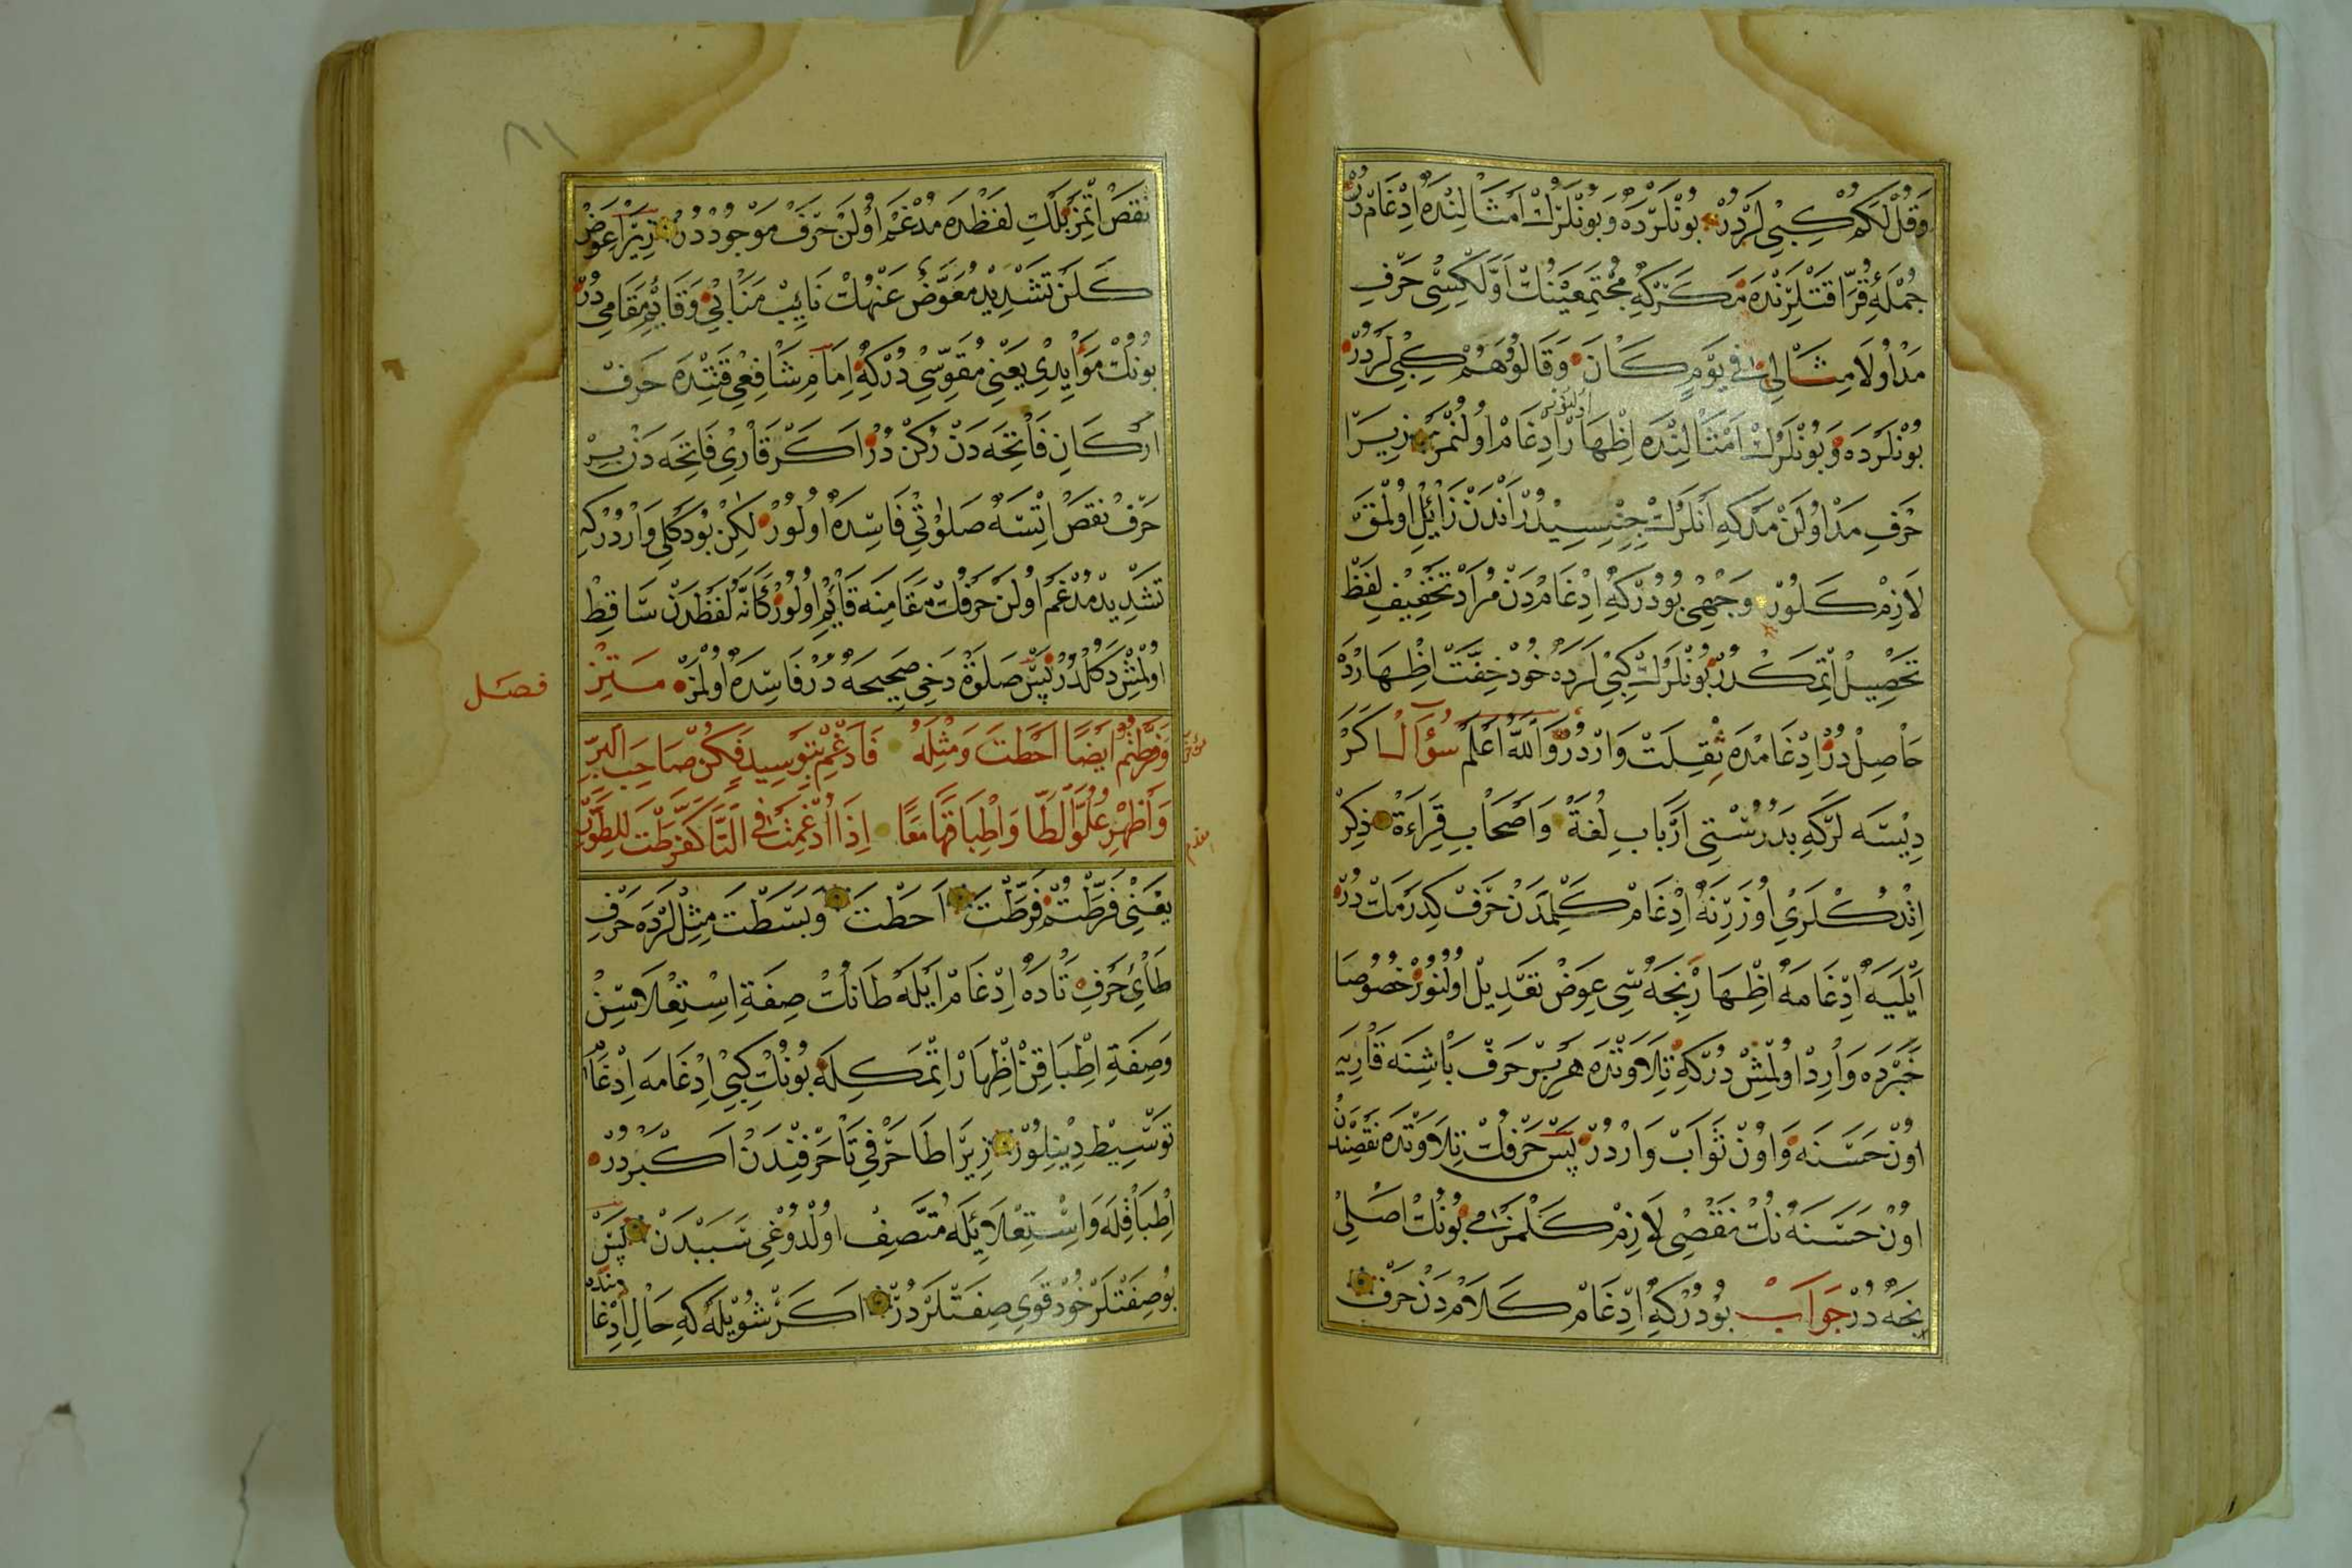 وَقُلْ لَكُمْ كِبِي لَرْدُرْ بُونْلَرْدَه وَبُونْلَرُكْ اَمْثَالِنْدَه اِدْغَامْ دُرْ
جُمْلَۀِ قُرَّا قَتْلَرِنْدَه مَكَرْكِه مُجْتَمِعَيْنُكْ اَوَّلْكِسِى حَرْفِ
مَدْ اُولَا مِثَالِى فِى يَوْمٍ كَانَ وَقَالُوا وَهُمْ كِبِى لَرْدُرْ
بُونْلَرْدَه وَبُونْلَرُكْ اَمْثَالِنْدَه اِظْهَارْ اُولُنُورْ اِدْغَامْ اُولُنْمَزْ زِيرَا
حَرْفِ مَدْ اُولَنْ مَدْكِه اَنْلَرُكْ جِنْسِيدُرْ اَنْدَنْ زَائِلْ اُولْمَقْ
لَازِمْ كَلُورْ وَجْهِى بُودُرْكِه اِدْغَامْدَنْ مُرَادْ تَخْفِيفِ لَفْظْ
تَحْصِيلْ اِتْمَكْدُرْ بُونْلَرُكْ كِبِى لَرْدَه خُودْ خِفَّتْ اِظْهَارْدَه
حَاصِلْ دُرْ اِدْغَامْدَه ثِقْلَتْ وَارْدُرْ وَاللّٰهُ اَعْلَمُ سُؤَالْ اَكَرْ
دِيسَه لَرْكِه بَدُرُسْتِى اَرْبَابِ لُغَةْ وَاَصْحَابِ قِرَاءَةْ ذِكْرْ
اِتْدُكْلَرِى اُوزَرِنَه اِدْغَامْ كَلِمَدَنْ حَرْفْ كِدَرْمَكْ دُرْ
اَيْلَيَه اِدْغَامَه اِظْهَارْ نِجَه سِى عِوَضْ تَعْدِيلْ اُولُنُورْ خُصُوصَا
خَبَرْدَه وَارِدْ اُولْمِشْ دُرْكِه تِلَاوَتْدَه هَرْ بِرْ حَرْفْ بَاشِنَه قَارِيَه
اُونْ حَسَنَه وَاُونْ ثَوَابْ وَارْدُرْ پَسْ حَرْفُكْ تِلَاوَتْدَه نَقْصِنْدَنْ
اُونْ حَسَنَه نُكْ نَقْصِى لَازِمْ كَلْمَزْمِى بُونُكْ اَصْلِى
نِجَه دُرْ جَوَابْ بُودُرْكِه اِدْغَامْ كَلَامْدَنْ حَرْفْ
نَقْصْ اِتْمَزْ بَلْكِ لَفْظْدَه مُدْغَمْ اُولَنْ حَرْفْ مَوْجُودْ دُرْ زِيرَا عِوَضْ
كَلَنْ تَشْدِيدْ مُعَوَّضْ عَنْهُكْ نَايِبْ مَنَابِى وَقَايِمْ مَقَامِى دُرْ
بُونُكْ مُؤَيِّدِى يَعْنِى مُقَوِّسِى دُرْكِه اِمَامِ شَافِعِى قَتِنْدَه حَرْفْ
اَرْكَانِ فَاتِحَه دَنْ رُكْنْ دُرْ اَكَرْ قَارِى فَاتِحَه دَنْ بِرْ
حَرْفْ نَقْصْ اِتْسَه صَلٰوتِى فَاسِدَه اُولُورْ لٰكِنْ بُودَكْلِى وَارْدُرْكِه
تَشْدِيدْ مُدْغَمْ اُولَنْ حَرْفُكْ مَقَامِنَه قَايِمْ اُولُورْ كَاَنَّهُ لَفْظْدَنْ سَاقِطْ
اُولْمِشْ دَكُلْدُرْ پَسْ صَلٰوةْ دَخِى صَحِيحَه دُرْ فَاسِدَه اُولْمَزْ مَتِنْ
فصل
وَفَرَّطْتُمْ اَيْضًا اَحَطْتَ وَمِثْلَهُ فَاَدْغِمْ بِتَوْسِيدٍ فَكُنْ صَاحِبَ الْبِرِّ
وَاَظْهِرْ عُلُوَّ الطَّا وَاِطْبَاقَهَا مَعًا اِذَا اُدْغِمَتْ فِى التَّا كَفَرَّطْتَ
يَعْنِى فَرَّطْتُمْ فَرَّطْتَ اَحَطْتَ وَبَسَطْتَ مِثْلِلَرْدَه حَرْفِ
طَائِ حَرْفِ تَادَه اِدْغَامْ اَيْلَه طَانُكْ صِفَةِ اِسْتِعْلَاسِنْ
وَصِفَةِ اِطْبَاقِنْ اِظْهَارْ اِتْمَكِلَه بُونُكْ كِبِى اِدْغَامَه اِدْغَامْ
تَوْسِيطْ دِينِلُورْ زِيرَا طَا حَرْفِى تَا حَرْفِنْدَنْ اَكْبَرْ دُرْ
اِطْبَاقِلَه وَاِسْتِعْلَايِلَه مُتَّصِفْ اُولْدُوغِى سَبَبْدَنْ پَسْ
بُو صِفَتْلَرْ خُودْ قَوِى صِفَتْلَرْدُرْ اَكَرْ شُويْلَه كِه حَالِ اِدْغَامِنْدَه